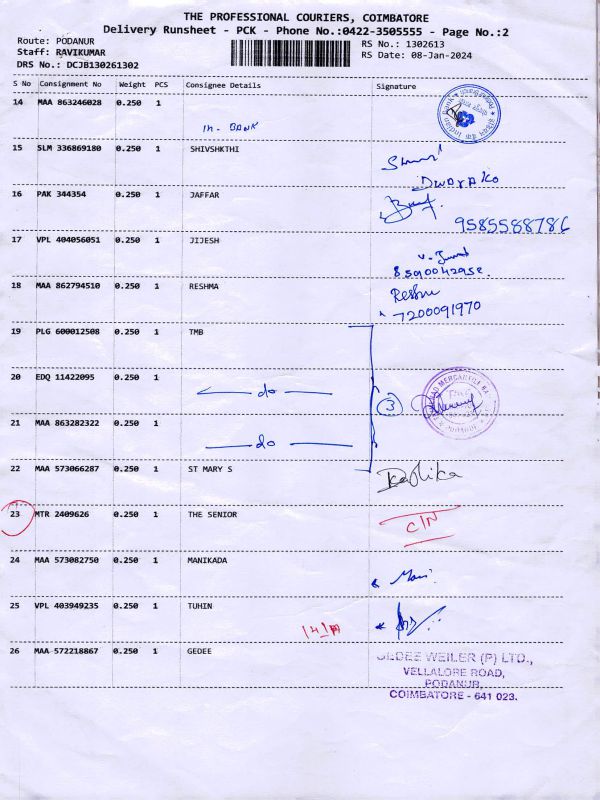 THE PROFESSIONAL COURIERS, COIMBATORE
Delivery Runsheet - PCK - Phone No.:0422-3505555 - Page No.:2
Route: PODANUR RS No.: 1302613
Staff: RAVIKUMAR RS Date: 08-Jan-2024
DRS No.: DCJB130261302
S No Consignment No Weight PCS Consignee Details Signature
14 MAA 863246028 0.250 1
BANK
15 SLM 336869180 0.250 1 SHIVSHKTHI
16 PAK 344354 0.250 1 JAFFAR
9585588786
17 VPL 404056051 0.250 1 JIJESH
18 MAA 862794510 0.250 1 RESHMA Reshm
7200091970
19 PLG 600012508 0.250 1 TMB
20 EDQ 11422095 0.250 1
do
3
21 MAA 863282322 0.250 1
do
22 MAA 573066287 0.250 1 ST MARY S
23 MTR 2409626 0.250 1 THE SENIOR
C/N
24 MAA 573082750 0.250 1 MANIKADA
Mani
25 VPL 403949235 0.250 1 TUHIN
26 MAA 572218867 0.250 1 GEDEE
GEDEE WEILER (P) LTD.,
VELLALORE ROAD,
PODANUR,
COIMBATORE - 641 023.